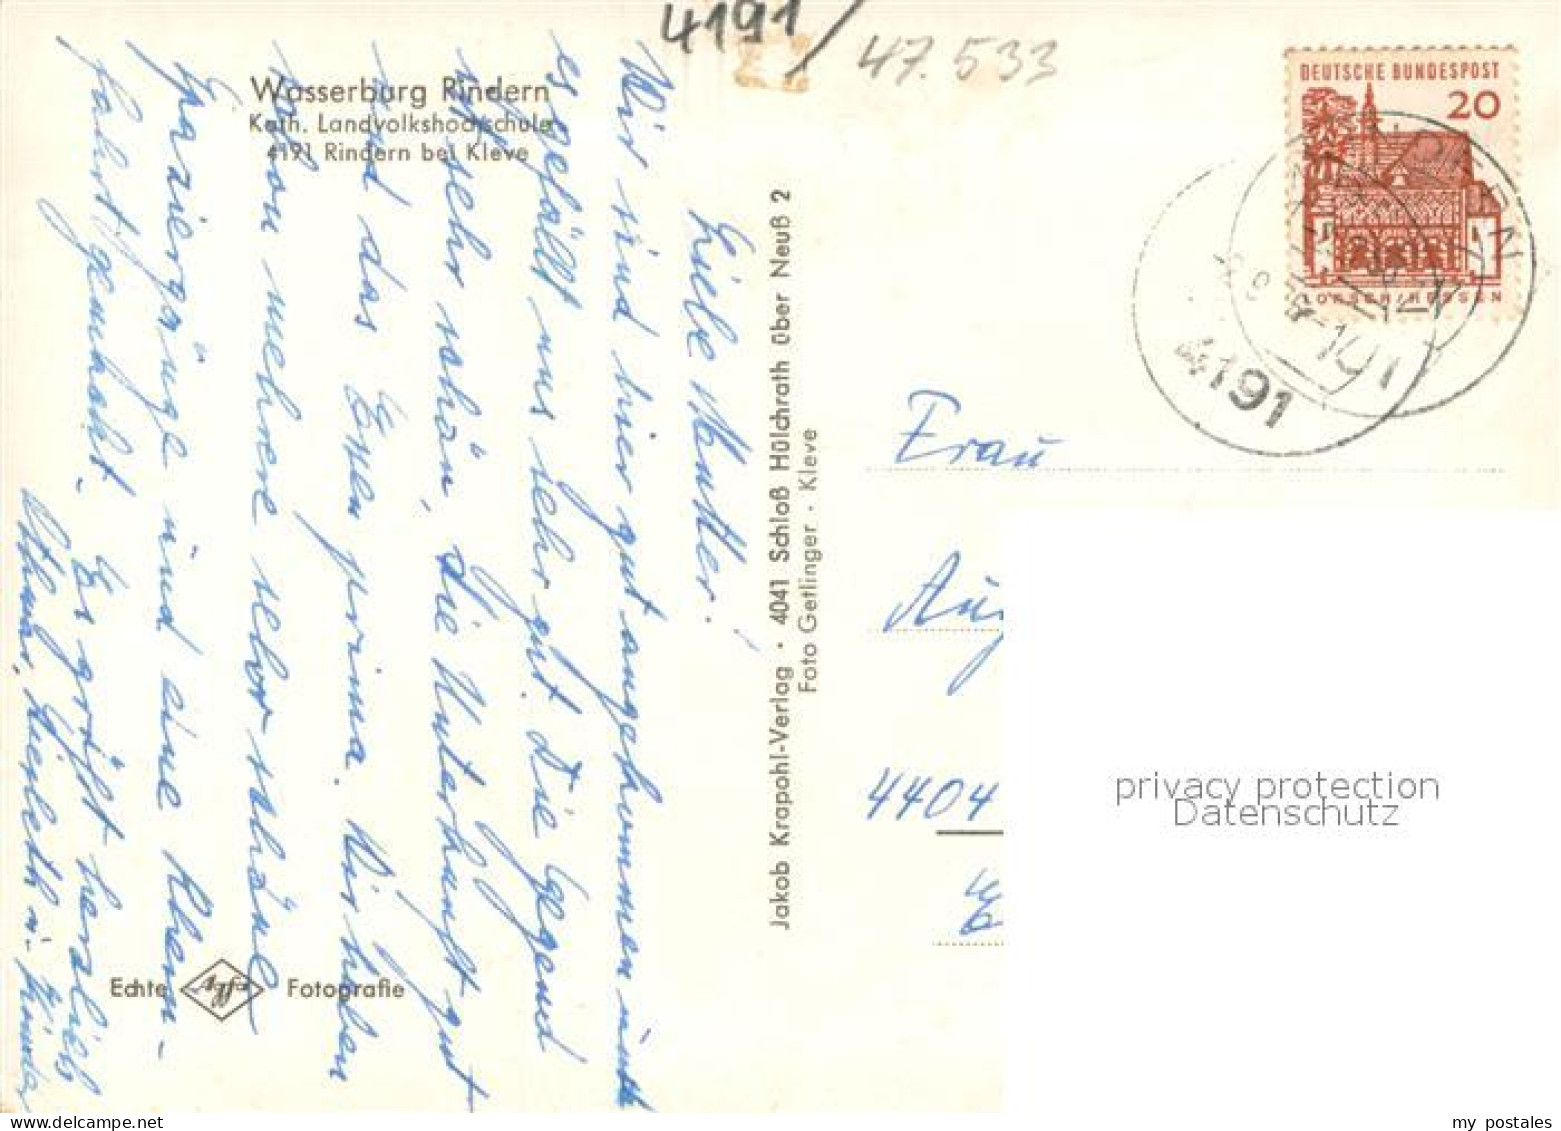 4191/
47.533
Wasserburg Rindern
Kath. Landvolkshochschule
4191 Rindern bei Kleve
Liebe Mutter!
Wir sind hier gut angekommen und
es gefällt uns sehr gut. Die Gegend
ist sehr schön, die Unterkunft gut
und das Essen prima. Wir haben
schon mehere sehr schöne
Spaziergänge und eine Rhein-
fahrt gemacht. Es grüßt herzlich
Othmar, u. Kinder
Echte Agfa Fotografie
Jakob Krapohl-Verlag · 4041 Schloß Hülchrath über Neuß 2
Foto Getlinger · Kleve
DEUTSCHE BUNDESPOST
20
LORSCH/HESSEN
4191
Frau
Aug
4404
privacy protection
Datenschutz
my postales